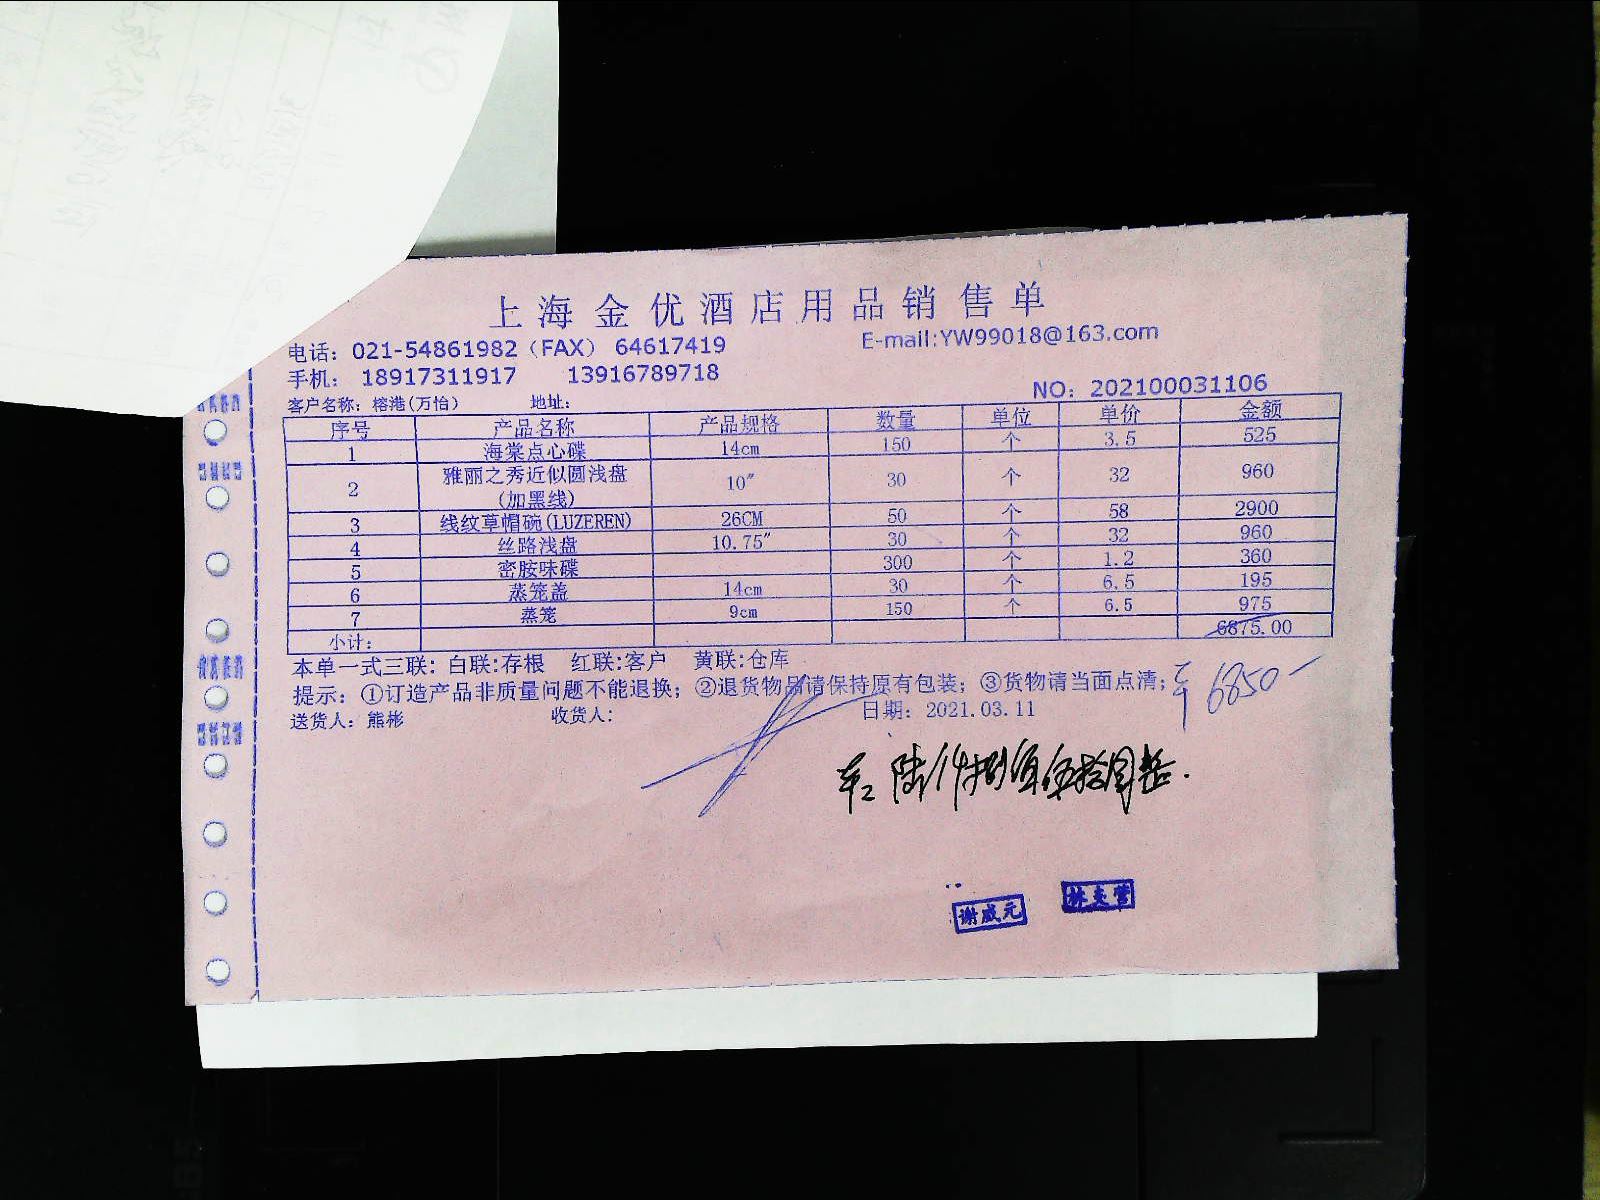 上海金优酒店用品销售单
电话：021-54861982（FAX） 64617419 E-mail:YW99018@163.com
手机： 18917311917 13916789718
NO：202100031106
客户名称：榕港(万怡） 地址：
序号 产品名称 产品规格 数量 单位 单价 金额
1 海棠点心碟 14cm 150 个 3.5 525
2 雅丽之秀近似圆浅盘 10″ 30 个 32 960
(加黑线)
3 线纹草帽碗(LUZEREN) 26CM 50 个 58 2900
4 丝路浅盘 10.75″ 30 个 32 960
5 密胺味碟 300 个 1.2 360
6 蒸笼盖 14cm 30 个 6.5 195
7 蒸笼 9cm 150 个 6.5 975
小计： 6875.00
本单一式三联：白联:存根 红联:客户 黄联:仓库
提示：①订造产品非质量问题不能退换；②退货物品请保持原有包装；③货物请当面点清；
6850
送货人：熊彬 收货人： 日期：2021.03.11
陆仟捌佰伍拾圆整.
谢成元